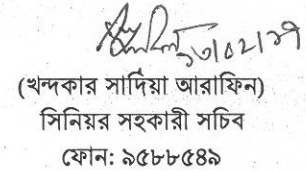 (খন্দকার সাদিয়া আরাফিন)
সিনিয়র সহকারী সচিব
ফোন: ৯৫৮৮৫৪৯